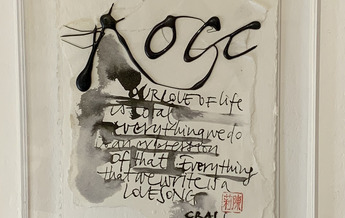 OUR LOVE OF life
is total
everything we do
is an expression
of that Everything
that we write is a
LOVE SONG